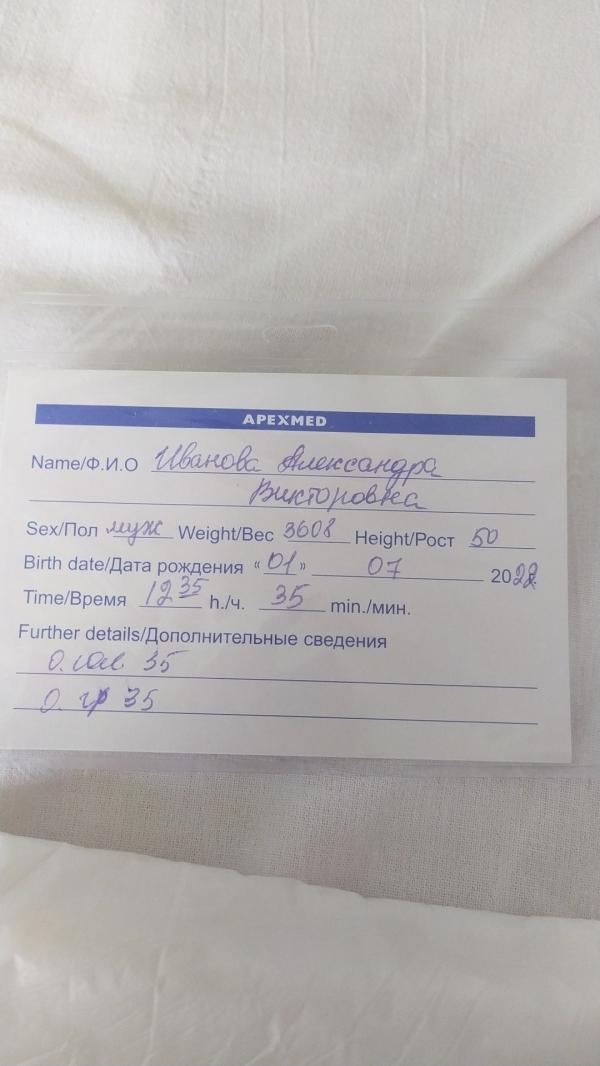 APEXMED
Name/Ф.И.О Иванова Александра
Викторовна
Sex/Пол муж Weight/Вес 3608 Height/Рост 50
Birth date/Дата рождения «01» 07 2022
Time/Время 12 35 h./ч. 35 min./мин.
Further details/Дополнительные сведения
О. гол 35
О. гр 35